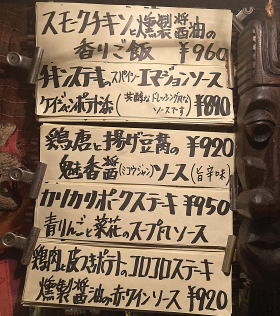 スモークチキンと燻製醤油の
香りご飯 ¥960
チキンステーキのスパイシーエマジョンソース
ケイジャンポテト添 ソースです ¥890
鶏唐と揚げ豆腐の ¥920
魅香醤(ミコウジャン)ソース(旨辛味)
カリカリポークステーキ ¥950
青りんごと菜花のスープ風ソース
鶏肉と皮つきポテトのコロコロステーキ
燻製醤油の赤ワインソース ¥920